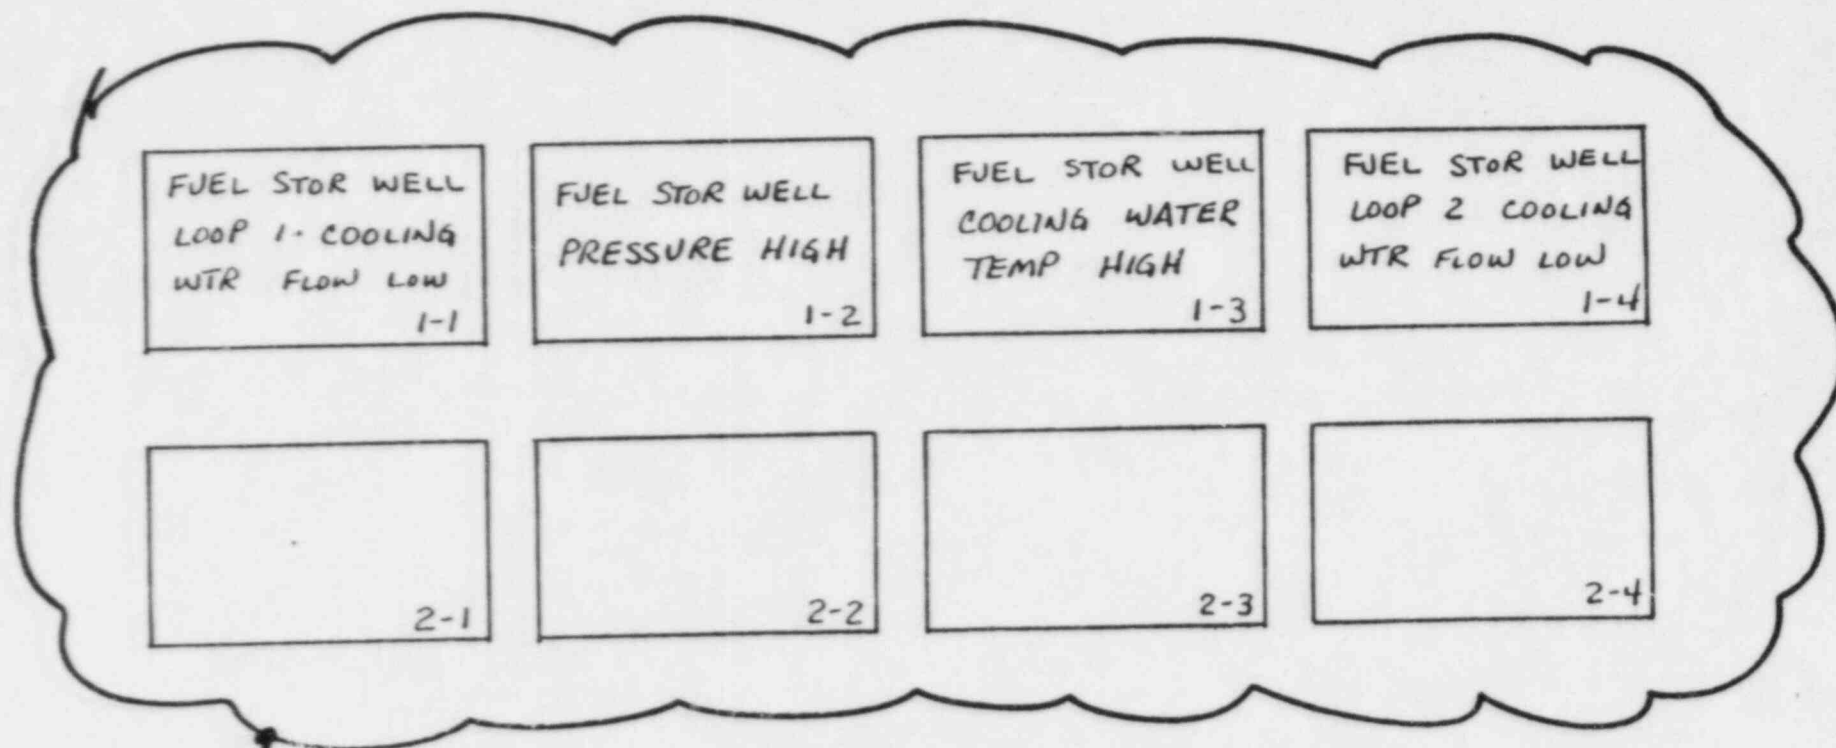 FUEL STOR WELL
LOOP 1. COOLING
WTR FLOW LOW
1-1
FUEL STOR WELL
PRESSURE HIGH
1-2
FUEL STOR WELL
COOLING WATER
TEMP HIGH
1-3
FUEL STOR WELL
LOOP 2 COOLING
WTR FLOW LOW
1-4
2-1
2-2
2-3
2-4